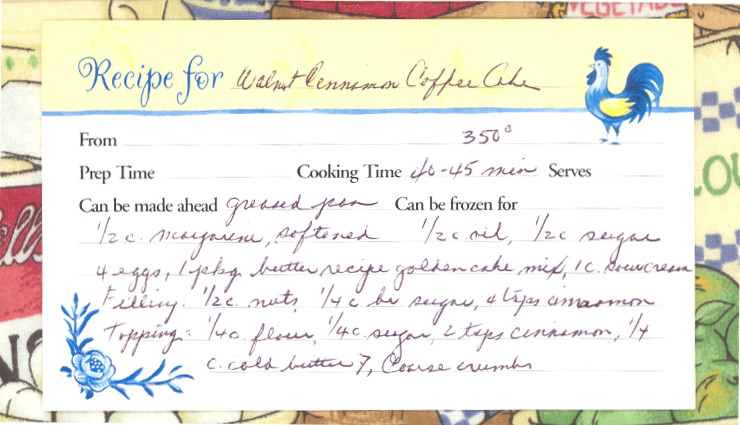 VEGETABL
Recipe for Walnut Cennamon Coffee Cake
From 350°
Prep Time Cooking Time 40-45 min Serves
Can be made ahead greased pan Can be frozen for
1/2 c. margarine, softened 1/2 c oil, 1/2 c sugar
4 eggs, 1 pkg. butter recipe golden cake mix, 1 c. sour cream
Filling: 1/2 c. nuts, 1/4 c br sugar, 4 tsps cinnamon
Topping: 1/4 c. flour, 1/4 c. sugar, 2 tsps cinnamon, 1/4
c. cold butter 7, Coarse crumbs